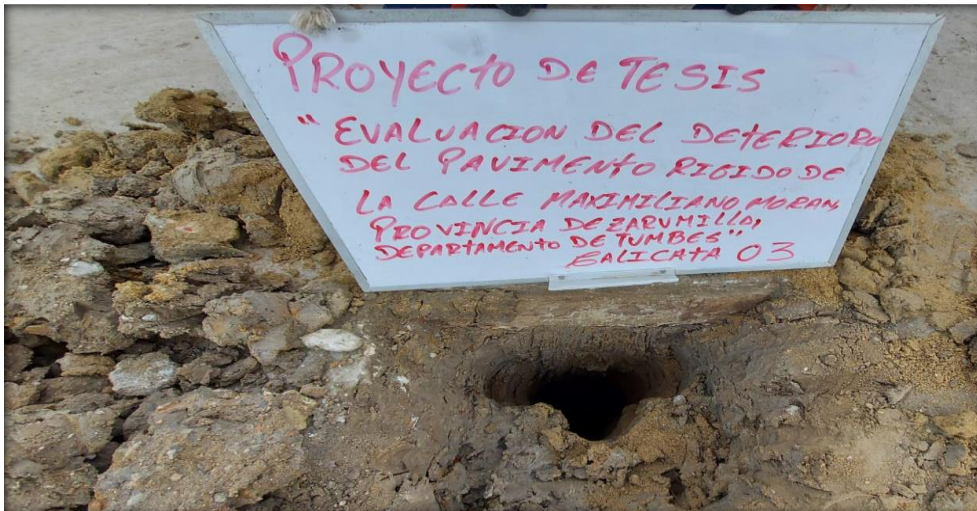 PROYECTO DE TESIS
" EVALUACION DEL DETERIORO
DEL PAVIMENTO RIGIDO DE
LA CALLE MAXIMILIANO MORAN,
PROVINCIA DE ZARUMILLA,
DEPARTAMENTO DE TUMBES"
CALICATA 03